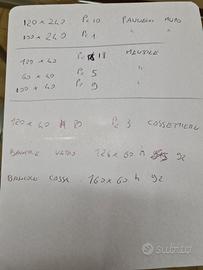 120 x 240 Pz 10 PANNELLI MURO
100 x 240 Pz 1 " "
120 x 40 Pz 18 MENSOLE
60 x 40 Pz 5 "
100 x 40 Pz 9 "
120 x 40 Pz 3 CASSETTIERA
BANCONE VETRO 126 x 60 h 92
BANCONE CASSA 160 x 60 h 92
subito